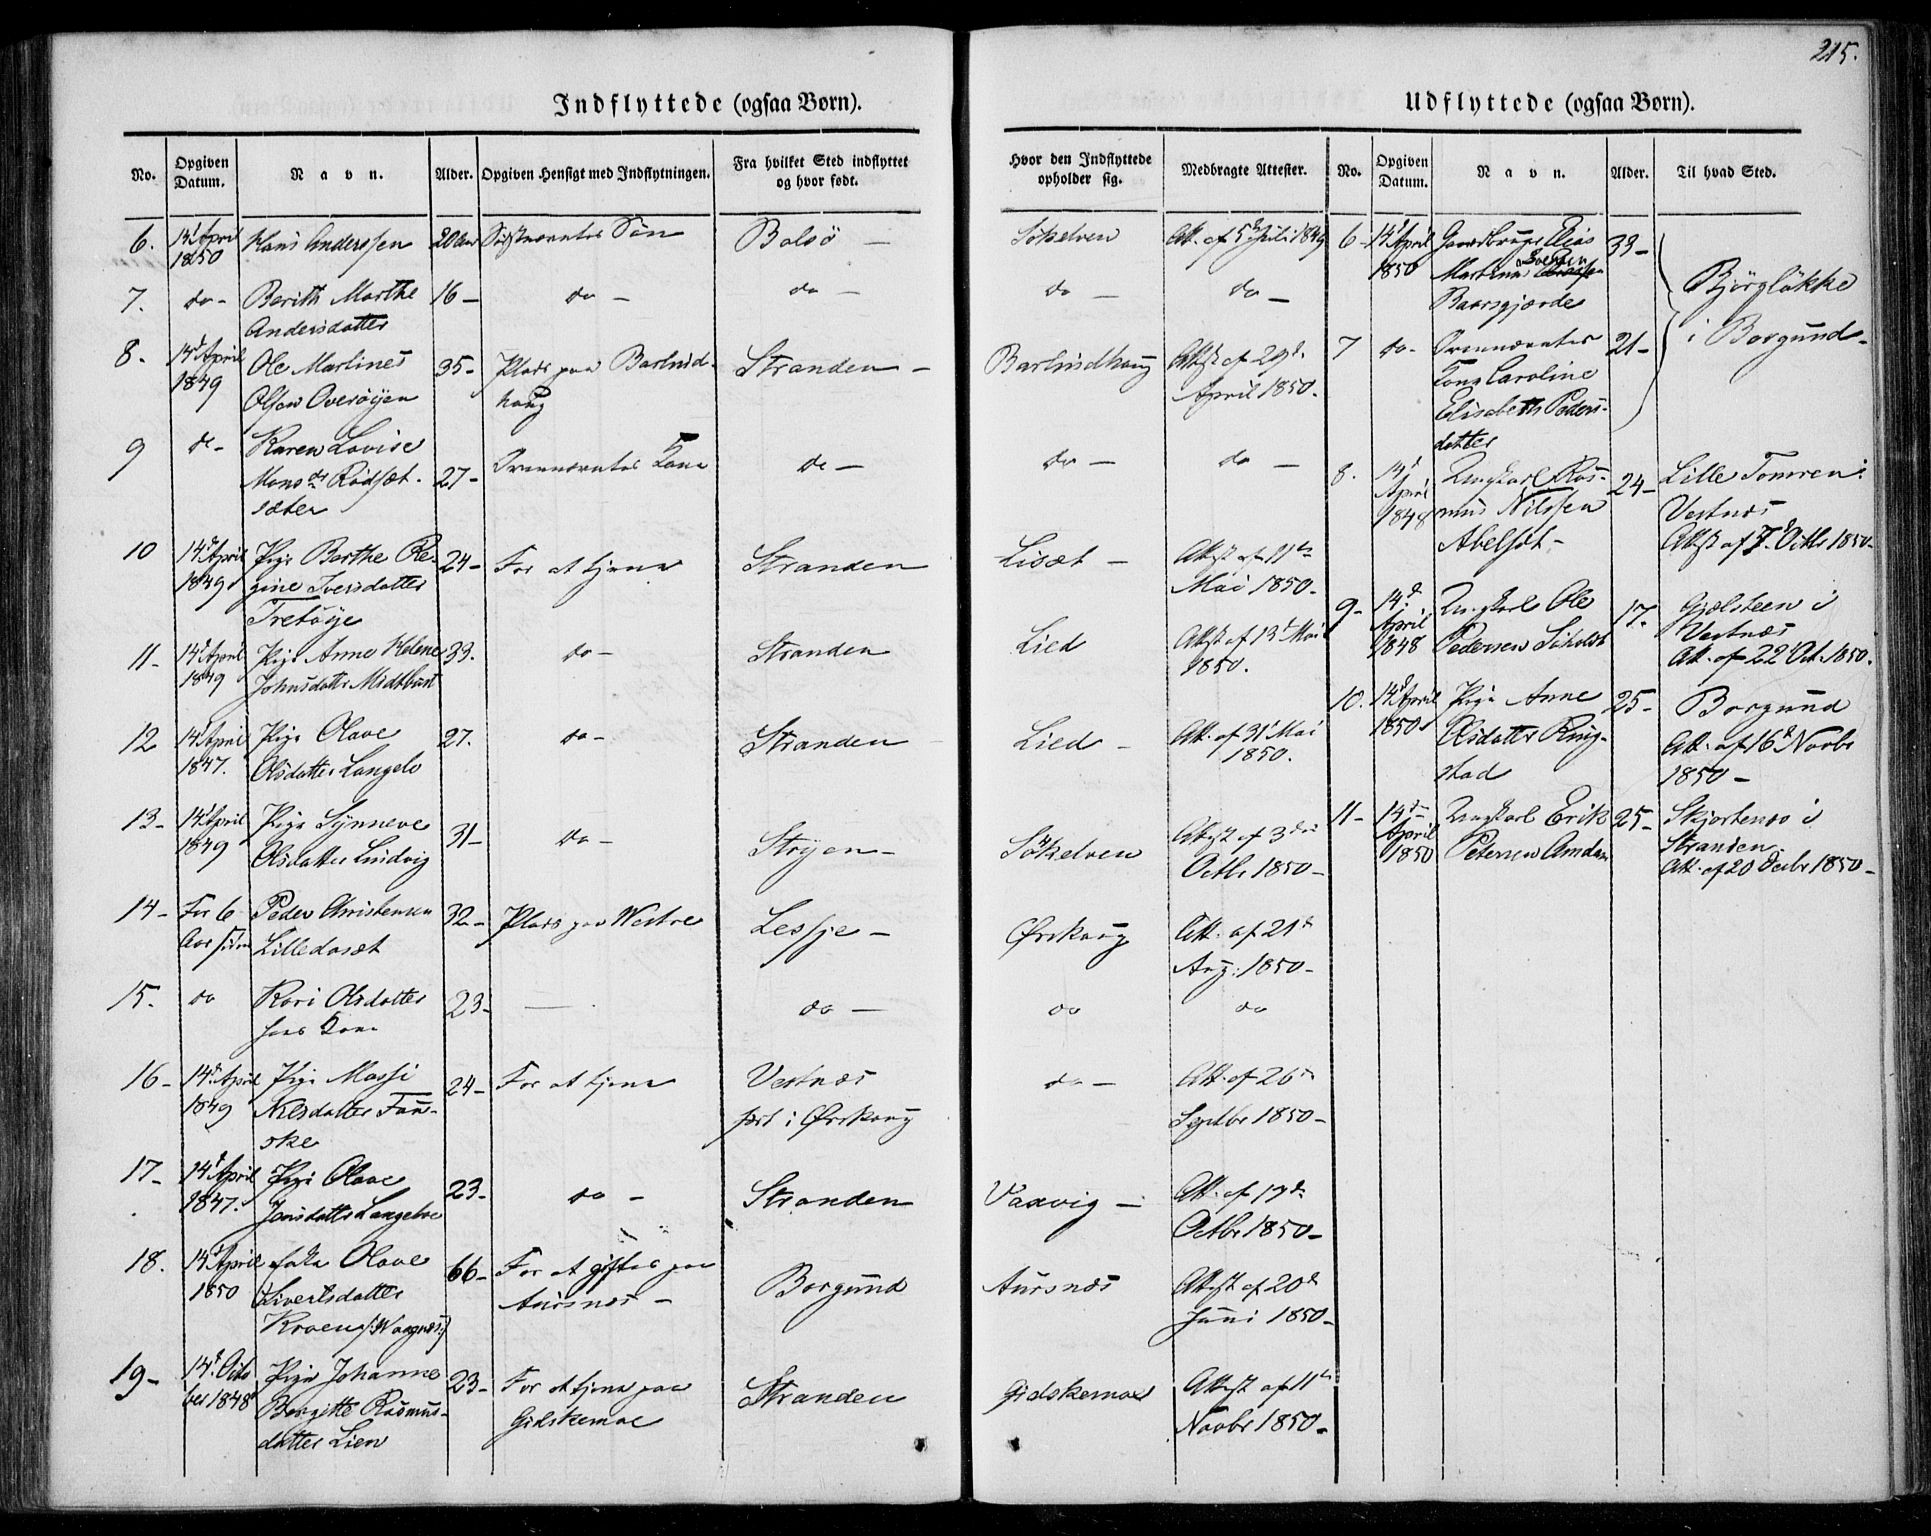 215.
Indflyttede (ogsaa Børn).
No.
Opgiven Datum.
Navn.
Alder.
Opgiven Hensigt med Indflytningen.
Fra hvilket Sted indflyttet og hvor født.
Hvor den Indflyttede opholder sig.
Medbragte Attester.
6. 14d April 1850 Hans Anderssen 20 Aar Søn Bolsö – Sökelven Att. af 5te Juli 1849
7. do – Berith Marthe Andersdatter 16 – do – do – do – do –
8. 14d April 1849 Ole Martines Olsen Overöyen 35 – Plads paa Barlindhaug Stranden – Barlindhaug Attest af 29d April 1850.
9 do – Karen Lovise Monsdr Rödsætsæter 27 – Ovennævntes Kone do – do – do –
10 14d April 1849 Pige Berthe Regine Iversdatter Tretöye 24 – For at tjene Stranden Lisæt – Attest af 11te Mai 1850.
11 – 14d April 1849 Pige Anne Helene Johnsdatter Midtbust 33. do – Stranden Lied Attest af 13d Mai 1850.
12 14d April 1847. Pige Olave Olsdatter Langelo 27. do – Stranden Lied – Att. af 31d Mai 1850.
13 – 14d April 1849 Pige Synneve Olsdatter Lindvig 31 – do – Stryen – Sökelven Attest af 3die Octbr 1850 –
14 – For 6 Aar siden Peder Christensen Lilledasæt 32 – Plads paa Westre Lessje – Ørskoug Att. af 21d Aug: 1850 –
15. do Kari Olsdatter hans Kone 23 – — do – do do
16 – 14d April 1849 Pige Massi Nilsdatter Fauske 24 – For at tjene Vestnæs født i Ørskoug do – Att. af 26d Septbr 1850 –
17 – 14d April 1847. Pige Olave Jonsdatter Langeloe 23 – do – Stranden Vaxvig – Att. af 17d Octbr 1850 –
18. 14d April 1850 Enke Olave Sivertsdatter Kroen (: Waagnæs :) 66 – For at giftes paa Aursnæs – Borgund Aursnæs Attest af 20d Juni 1850 –
19 – 14d October 1848 Pige Johanne Bergitte Rasmusdatter Lien 23 – For at tjene paa Gidskemoe Stranden Gidskemoe Attest af 11te Novbr 1850 –
Udflyttede (ogsaa Børn).
No.
Opgiven Datum.
Navn.
Alder.
Til hvad Sted.
6 – 14d April 1850 Gaardbruger Elias Martinus Svensen Baarsgjærde 33 – Björgløkke i Borgund –
7 do – Ovennævntes Kone Caroline Elisabeth Pedersdatter 21 –
8. 14d April 1848 Ungkarl Rasmus Nilssen Abelsæt – 24 – Lille Tomren i Vestnæs Attest af 7d Octbr 1850 –
9 – 14d April 1848 Ungkarl Ole Pedersen Siholdt 17. Gjælsteen i Vestnæs Att. af 22d Oct. 1850.
10. 14d April 1850 Pige Anne Olsdatter Ringstad 25 – Borgund Att. af 16d Novbr 1850 –
11 – 14d April 1850 Ungkarl Erik Petersen Amdam 25 – Skjortenæs i Stranden. Att. af 20 Decbr 1850 –